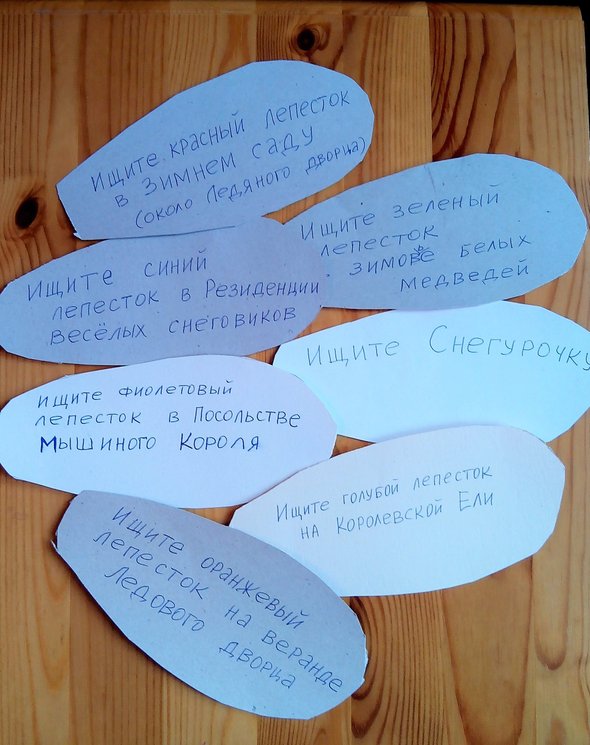 Ищите красный лепесток
в Зимнем саду
(около Ледяного дворца)
Ищите зеленый
лепесток
зимовье белых
медведей
Ищите синий
лепесток в Резиденции
весёлых снеговиков
Ищите Снегурочку
ищите фиолетовый
лепесток в Посольстве
Мышиного Короля
Ищите голубой лепесток
на Королевской Ели
Ищите оранжевый
лепесток на веранде
Ледового дворца